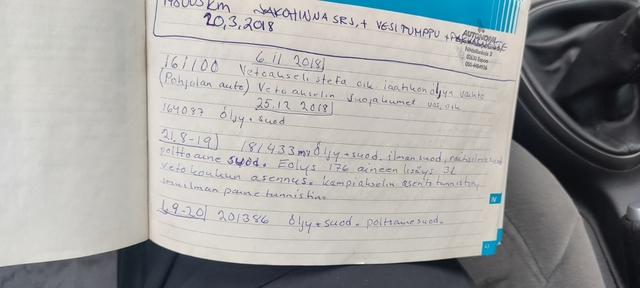 148003 KM JAKOHINNA SRS, + VESITUMPPU +
20,3,2018
AUTONOVA
6.11 2018
161100 Vetoakseli stefa oik. laatikon öljyn vaihto
(Pohjolan auto) Vetoakselin suojakumet vas, oik
25.12 2018
164087 Öljy + suod
21,8-19 181433 Öljy + suod, ilmansuod,
polttoaine suod. Eolys 176 aineen lisäys 3L
vetokoukun asennus. kampiakselin asento tunnistin,
imuilman paine tunnistin.
4.9-20 201386 Öljy + suod. polttoainesuod.
IV